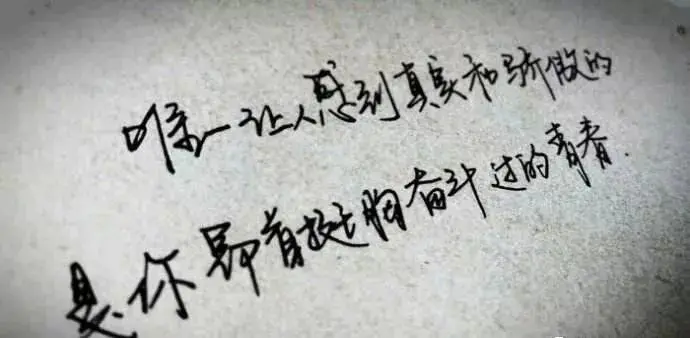 唯一让人感到真实和骄傲的
是你昂首挺胸奋斗过的青春.